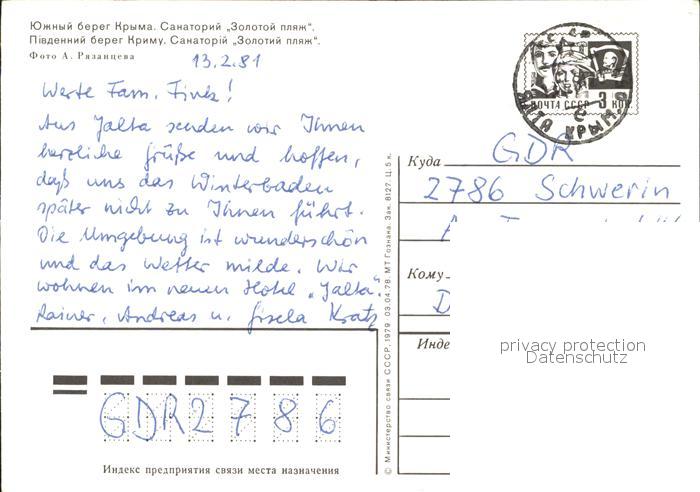 Южный берег Крыма. Санаторий „Золотой пляж“.
Південний берег Криму. Санаторій „Золотий пляж“.
Фото А. Рязанцева
13.2.81
Werte Fam. Finck!
Aus Jalta senden wir Ihnen
herzliche Grüße und hoffen,
daß uns das Winterbaden
später nicht zu Ihnen führt.
Die Umgebung ist wunderschön
und das Wetter milde. Wir
wohnen im neuen Hotel „Jalta“.
Rainer, Andreas u. Gisela Kratz
ПОЧТА СССР 3 КОП.
ЯЛТА КРЫМ.
Куда
GDR
2786 Schwerin
Кому
D
Инде
privacy protection
Datenschutz
© Министерство связи СССР, 1979. 03.04.78. МТ Гознака. Зак. 8127. Ц. 5 к.
GDR2786
Индекс предприятия связи места назначения